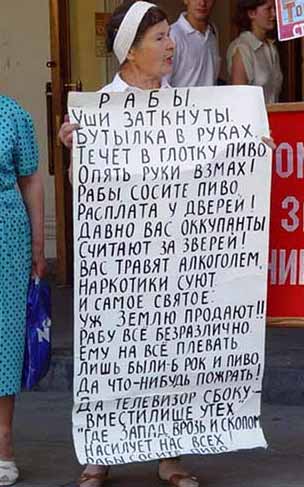 РАБЫ.
УШИ ЗАТКНУТЫ.
БУТЫЛКА В РУКАХ.
ТЕЧЁТ В ГЛОТКУ ПИВО
ОПЯТЬ РУКИ ВЗМАХ!
РАБЫ, СОСИТЕ ПИВО,
РАСПЛАТА У ДВЕРЕЙ!
ДАВНО ВАС ОККУПАНТЫ
СЧИТАЮТ ЗА ЗВЕРЕЙ!
ВАС ТРАВЯТ АЛКОГОЛЕМ,
НАРКОТИКИ СУЮТ
И САМОЕ СВЯТОЕ:
УЖ ЗЕМЛЮ ПРОДАЮТ!!
РАБУ ВСЁ БЕЗРАЗЛИЧНО.
ЕМУ НА ВСЁ ПЛЕВАТЬ
ЛИШЬ БЫЛИ-Б РОК И ПИВО,
ДА ЧТО-НИБУДЬ ПОЖРАТЬ!
ДА ТЕЛЕВИЗОР СБОКУ-
"ВМЕСТИЛИЩЕ УТЕХ"
"ГДЕ ЗАПАД ВРОЗЬ И СКОПОМ
НАСИЛУЕТ НАС ВСЕХ!
РАБЫ СОСИТЕ ПИВО